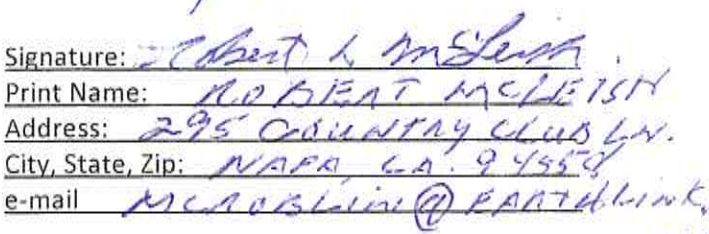 Signature: Robert L McLeish
Print Name: ROBERT MCLEISH
Address: 295 COUNTRY CLUB LN.
City, State, Zip: NAPA, CA. 94558
e-mail @ EARTHLINK.